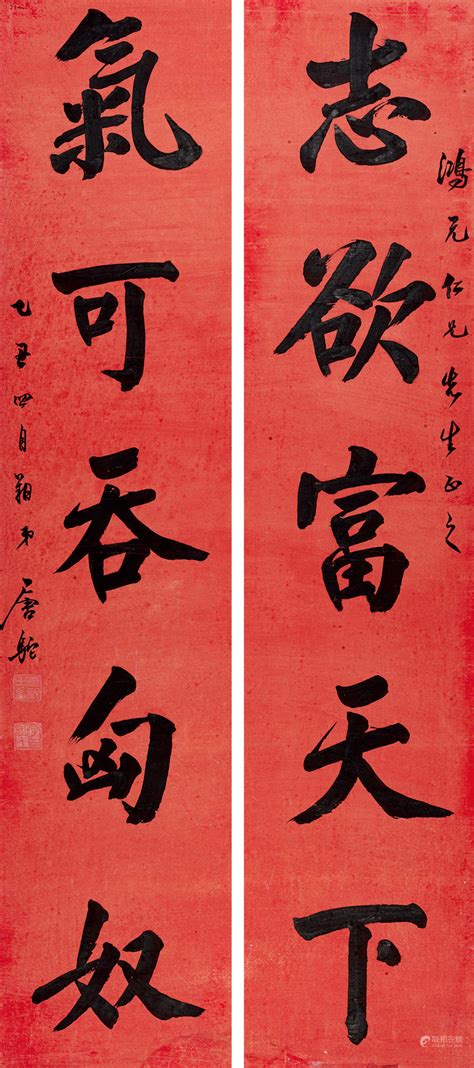 鴻元仁兄先生正之
志欲富天下
氣可吞匈奴
乙丑四月弟唐駝
联拍在线